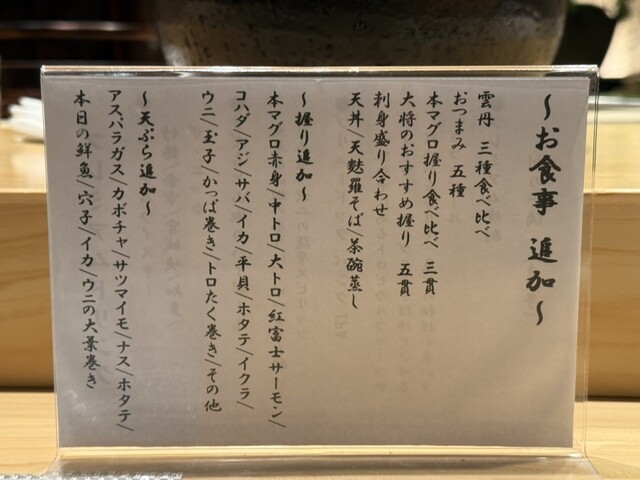 〜お食事 追加〜
雲丹 三種食べ比べ
おつまみ 五種
本マグロ握り食べ比べ 三貫
大将のおすすめ握り 五貫
刺身盛り合わせ
天丼/天麩羅そば/茶碗蒸し
〜握り追加〜
本マグロ赤身/中トロ/大トロ/紅富士サーモン/
コハダ/アジ/サバ/イカ/平貝/ホタテ/イクラ/
ウニ/玉子/かっぱ巻き/トロたく巻き/その他
〜天ぷら追加〜
アスパラガス/カボチャ/サツマイモ/ナス/ホタテ/
本日の鮮魚/穴子/イカ/ウニの大葉巻き